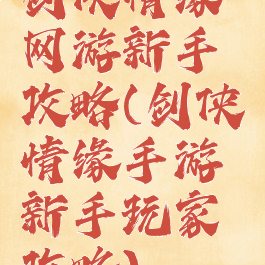 剑侠情缘
网游新手
攻略(剑侠
情缘手游
新手玩家
攻略)